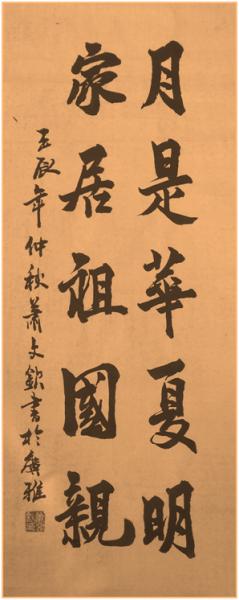 月是華夏明
家居祖國親
壬辰年仲秋蕭文欽書於廣雅